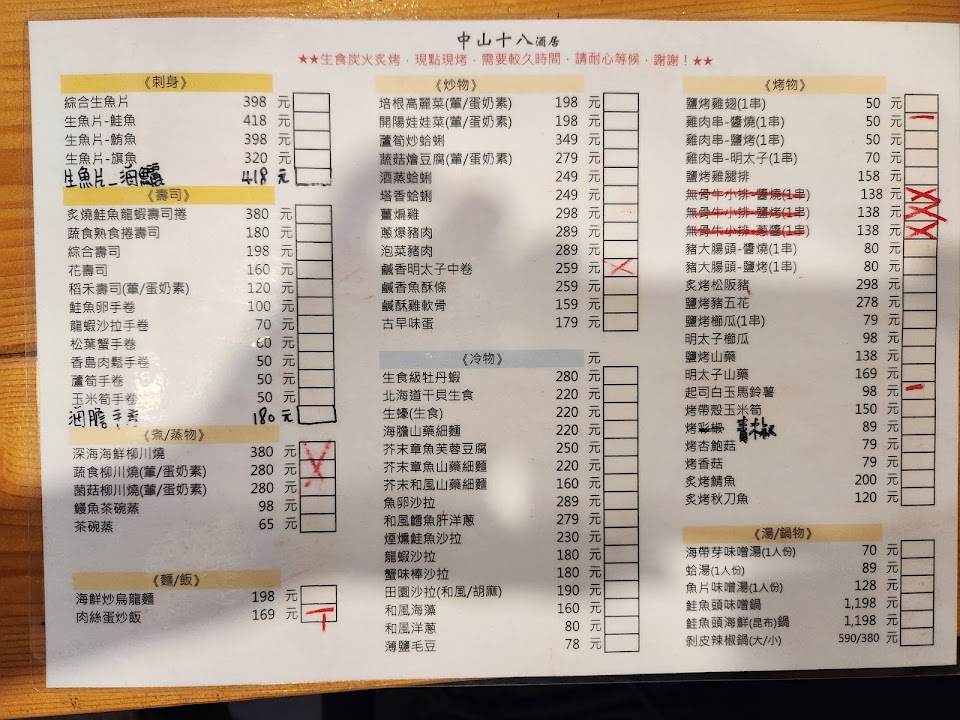 中山十八酒居
★★生食炭火炙烤，現點現烤，需要較久時間，請耐心等候，謝謝！★★
《刺身》
綜合生魚片 398 元
生魚片-鮭魚 418 元
生魚片-鮪魚 398 元
生魚片-旗魚 320 元
生魚片-海鱺 418 元
《壽司》
炙燒鮭魚龍蝦壽司捲 380 元
蔬食熟食捲壽司 180 元
綜合壽司 198 元
花壽司 160 元
稻禾壽司(葷/蛋奶素) 120 元
鮭魚卵手卷 100 元
龍蝦沙拉手卷 70 元
松葉蟹手卷 60 元
香島肉鬆手卷 50 元
蘆筍手卷 50 元
玉米筍手卷 50 元
海膽手卷 180 元
《煮/蒸物》
深海海鮮柳川燒 380 元
蔬食柳川燒(葷/蛋奶素) 280 元
菌菇柳川燒(葷/蛋奶素) 280 元
鰻魚茶碗蒸 98 元
茶碗蒸 65 元
《麵/飯》
海鮮炒烏龍麵 198 元
肉絲蛋炒飯 169 元
《炒物》
培根高麗菜(葷/蛋奶素) 198 元
開陽娃娃菜(葷/蛋奶素) 198 元
蘆筍炒蛤蜊 349 元
蔬菇燴豆腐(葷/蛋奶素) 279 元
酒蒸蛤蜊 249 元
塔香蛤蜊 249 元
薑煸雞 298 元
蔥爆豬肉 289 元
泡菜豬肉 289 元
鹹香明太子中卷 259 元
鹹香魚酥條 259 元
鹹酥雞軟骨 159 元
古早味蛋 179 元
《冷物》 元
生食級牡丹蝦 280 元
北海道干貝生食 220 元
生蠔(生食) 220 元
海膽山藥細麵 220 元
芥末章魚芙蓉豆腐 250 元
芥末章魚山藥細麵 220 元
芥末和風山藥細麵 160 元
魚卵沙拉 289 元
和風鱈魚肝洋蔥 279 元
煙燻鮭魚沙拉 230 元
龍蝦沙拉 180 元
蟹味棒沙拉 180 元
田園沙拉(和風/胡麻) 190 元
和風海藻 160 元
和風洋蔥 80 元
薄鹽毛豆 78 元
《烤物》
鹽烤雞翅(1串) 50 元
雞肉串-醬燒(1串) 50 元
雞肉串-鹽烤(1串) 50 元
雞肉串-明太子(1串) 70 元
鹽烤雞腿排 158 元
無骨牛小排-醬燒(1串) 138 元
無骨牛小排-鹽烤(1串) 138 元
無骨牛小排-蔥醬(1串) 138 元
豬大腸頭-醬燒(1串) 80 元
豬大腸頭-鹽烤(1串) 80 元
炙烤松阪豬 298 元
鹽烤豬五花 278 元
鹽烤櫛瓜(1串) 79 元
明太子櫛瓜 98 元
鹽烤山藥 138 元
明太子山藥 169 元
起司白玉馬鈴薯 98 元
烤帶殼玉米筍 150 元
烤彩椒 青椒 89 元
烤杏鮑菇 79 元
烤香菇 79 元
炙烤鯖魚 200 元
炙烤秋刀魚 120 元
《湯/鍋物》
海帶芽味噌湯(1人份) 70 元
蛤湯(1人份) 89 元
魚片味噌湯(1人份) 128 元
鮭魚頭味噌鍋 1,198 元
鮭魚頭海鮮(昆布)鍋 1,198 元
剝皮辣椒鍋(大/小) 590/380 元